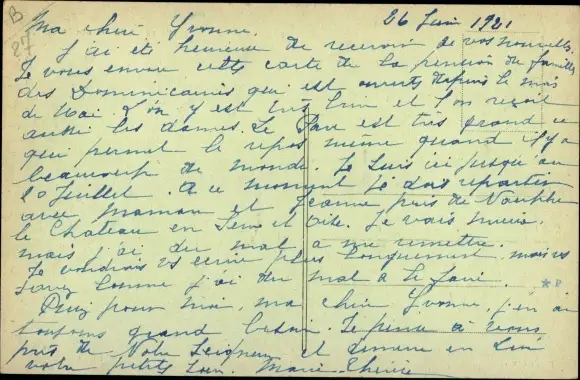 B
27
26 Juin 1921
Ma chère Yvonne.
J'ai été heureuse de recevoir de vos nouvelles.
Je vous envoie cette carte de la pension de famille
des Dominicaines qui est ouverte depuis le mois
de Mai. L'on y est très bien et l'on reçoit
aussi les dames. Le Parc est très grand ce
qui permet le repos même quand il y a
beaucoup de monde. Je suis ici jusqu'au
10 Juillet. A ce moment je dois repartir
avec maman et Jeanne près de Neauphle
le Chateau en Seine et Oise. Je vais mieux
mais j'ai du mal à me remettre.
Je voudrais vs écrire plus longuement, mais vs
savez comme j'ai du mal à le faire.
Priez pour moi, ma chère Yvonne, j'en ai
toujours grand besoin. Je pense à vous
près de Notre Seigneur et demeure en Lui
votre petite sœur. Marie-Thérèse